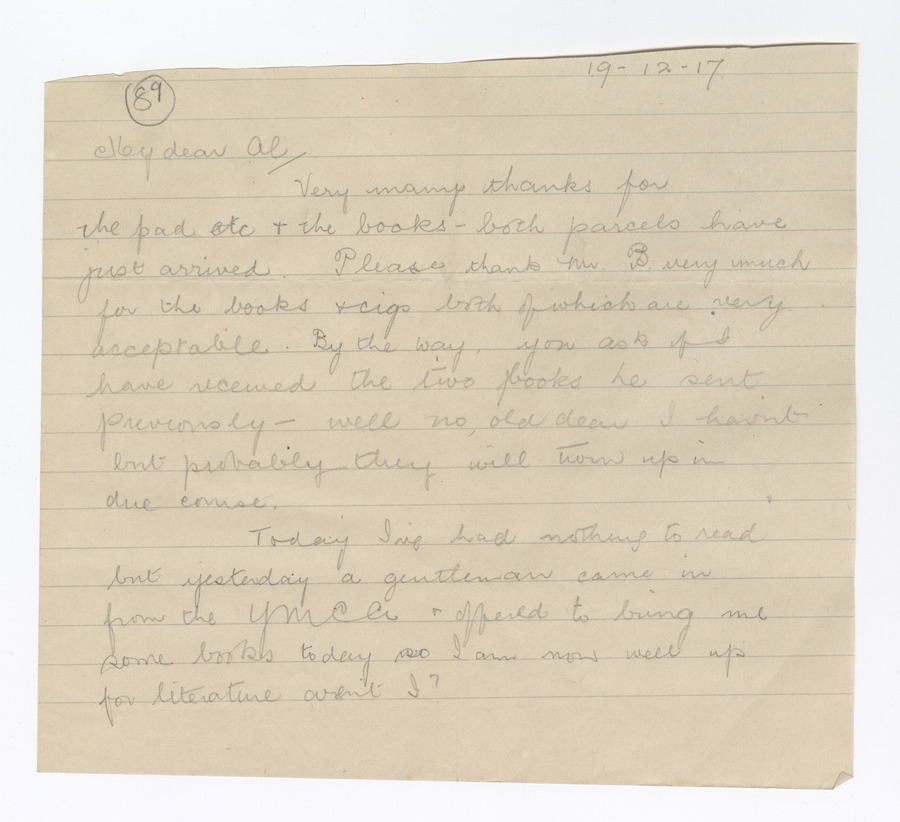 19-12-17
89
My dear Al,
Very many thanks for
the pad etc + the books - both parcels have
just arrived. Please thank Mr. B. very much
for the books & cigs both of which are very
acceptable. By the way, you ask if I
have received the two books he sent
previously - well no, old dear I havnt
but probably they will turn up in
due course.
Today I've had nothing to read
but yesterday a gentleman came in
from the YMCA + offered to bring me
some books today so I am now well up
for literature aren't I?